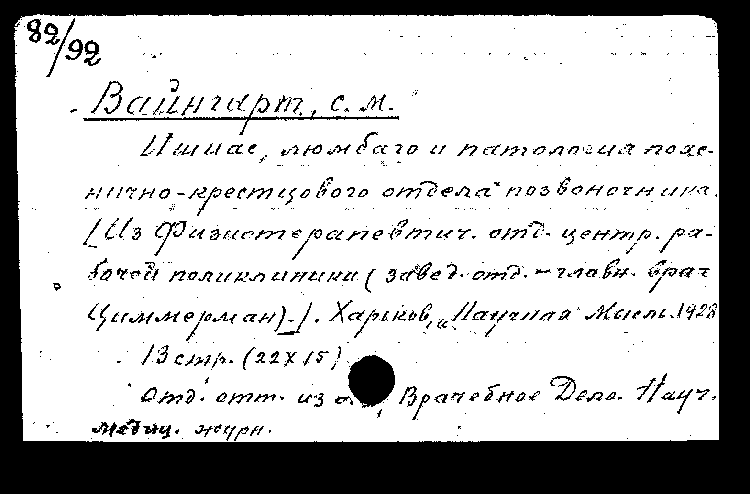 82/92
Вайнгарт, С. М.
Ишиас, люмбаго и патология пояс-
нично-крестцового отдела позвоночника.
[Из Физиотерапевтич. отд. центр. ра-
бочей поликлиники (завед. отд. - главн. врач
Циммерман).]. Харьков, „Научная Мысль 1928
13 стр. (22х15)
Отд. отт. из Врачебное Дело. Науч.
медиц. журн.